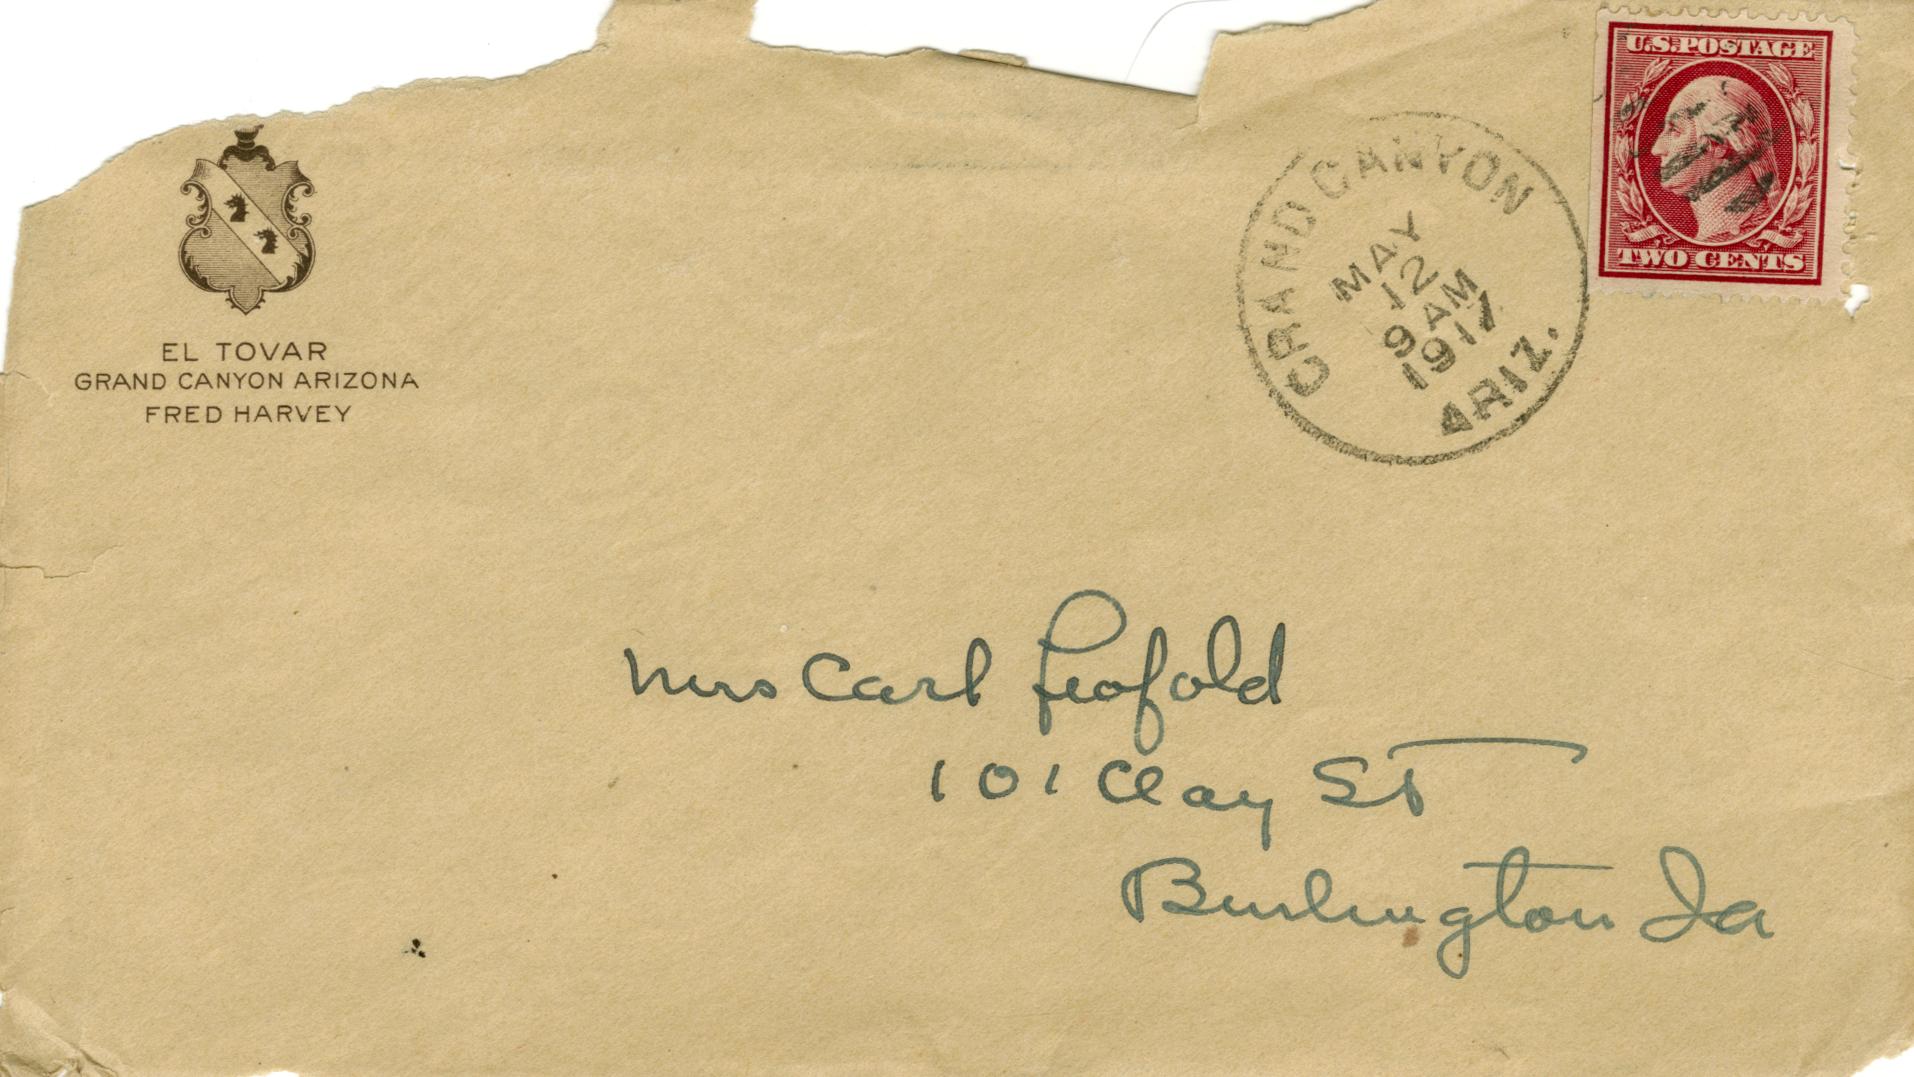 EL TOVAR
GRAND CANYON ARIZONA
FRED HARVEY
GRAND CANYON
MAY
12
9 AM
1917
ARIZ.
U.S. POSTAGE
TWO CENTS
Mrs Carl Leopold
101 Clay St
Burlington Ia